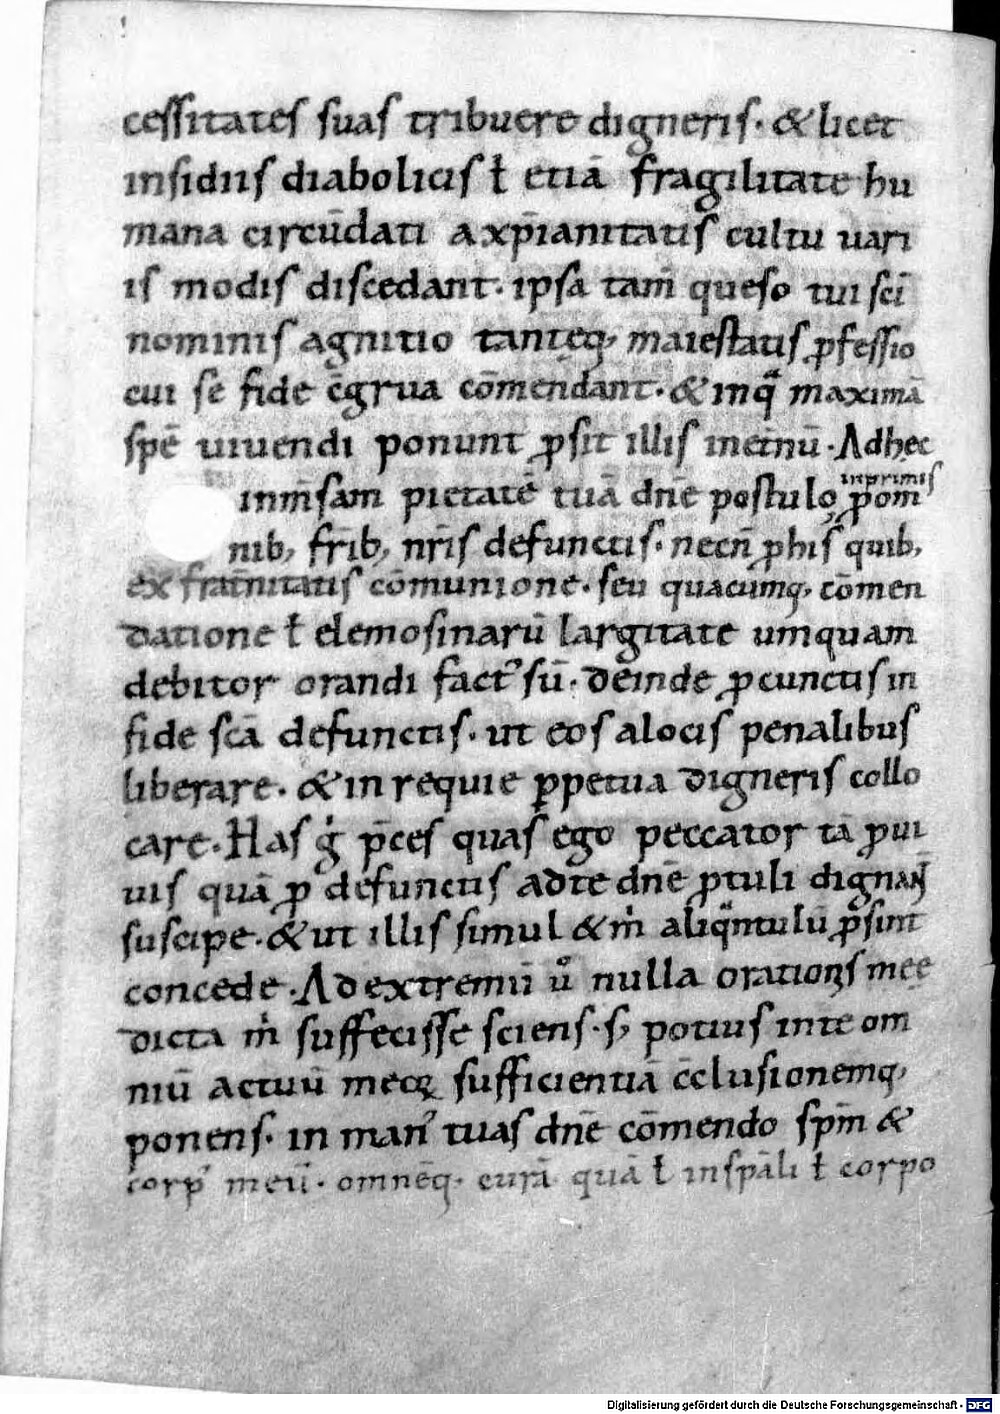 cessitates suas tribuere digneris. & licet
insidiis diabolicis ł etiā fragilitate hu
mana circūdati a xp̄ianitatis cultu uari
is modis discedant. ipsa tam̄ queso tui sc̄i
nominis agnitio tantęq; maiestatis ꝓfessio
cui se fide c̄grua cōmendant. & inqͣ maximā
spē uiuendi ponunt ꝓsit illis inet̄nū. Adhęc
inprimis
inm̄sam pietatē tuā dn̄e postulo, ꝓ om̄
nib; fr̄ib; nr̄is defunctis. necn̄ ꝓ his quib;
ex frat̄nitatis cōmunione. seu quacumq; cōmen
datione ł elemosinarū largitate umquam
debitor orandi factꝰ sū. deinde ꝓ cunctis in
fide sc̄a defunctis. ut eos a locis penalibus
liberare. & in requie ꝑpetua digneris collo
care. Has gͥ p̄ces quas ego peccator tā ꝓ ui
uis quā ꝓ defunctis ad te dn̄e ꝓtuli dignanṫ
suscipe. & ut illis simul & mͥ aliqͣntulū ꝓsint
concede. Ad extremū uͦ nulla orationis meę
dicta mͥ suffecisse sciens. s; potius in te om
niū actuū meoꝝ sufficientiā c̄clusionemq;
ponens. in manꝰ tuas dn̄e cōmendo sp̄m &
corpꝰ meū. omnēq; curā quā ł in sp̄ali ł corpo
Digitalisierung gefördert durch die Deutsche Forschungsgemeinschaft - DFG